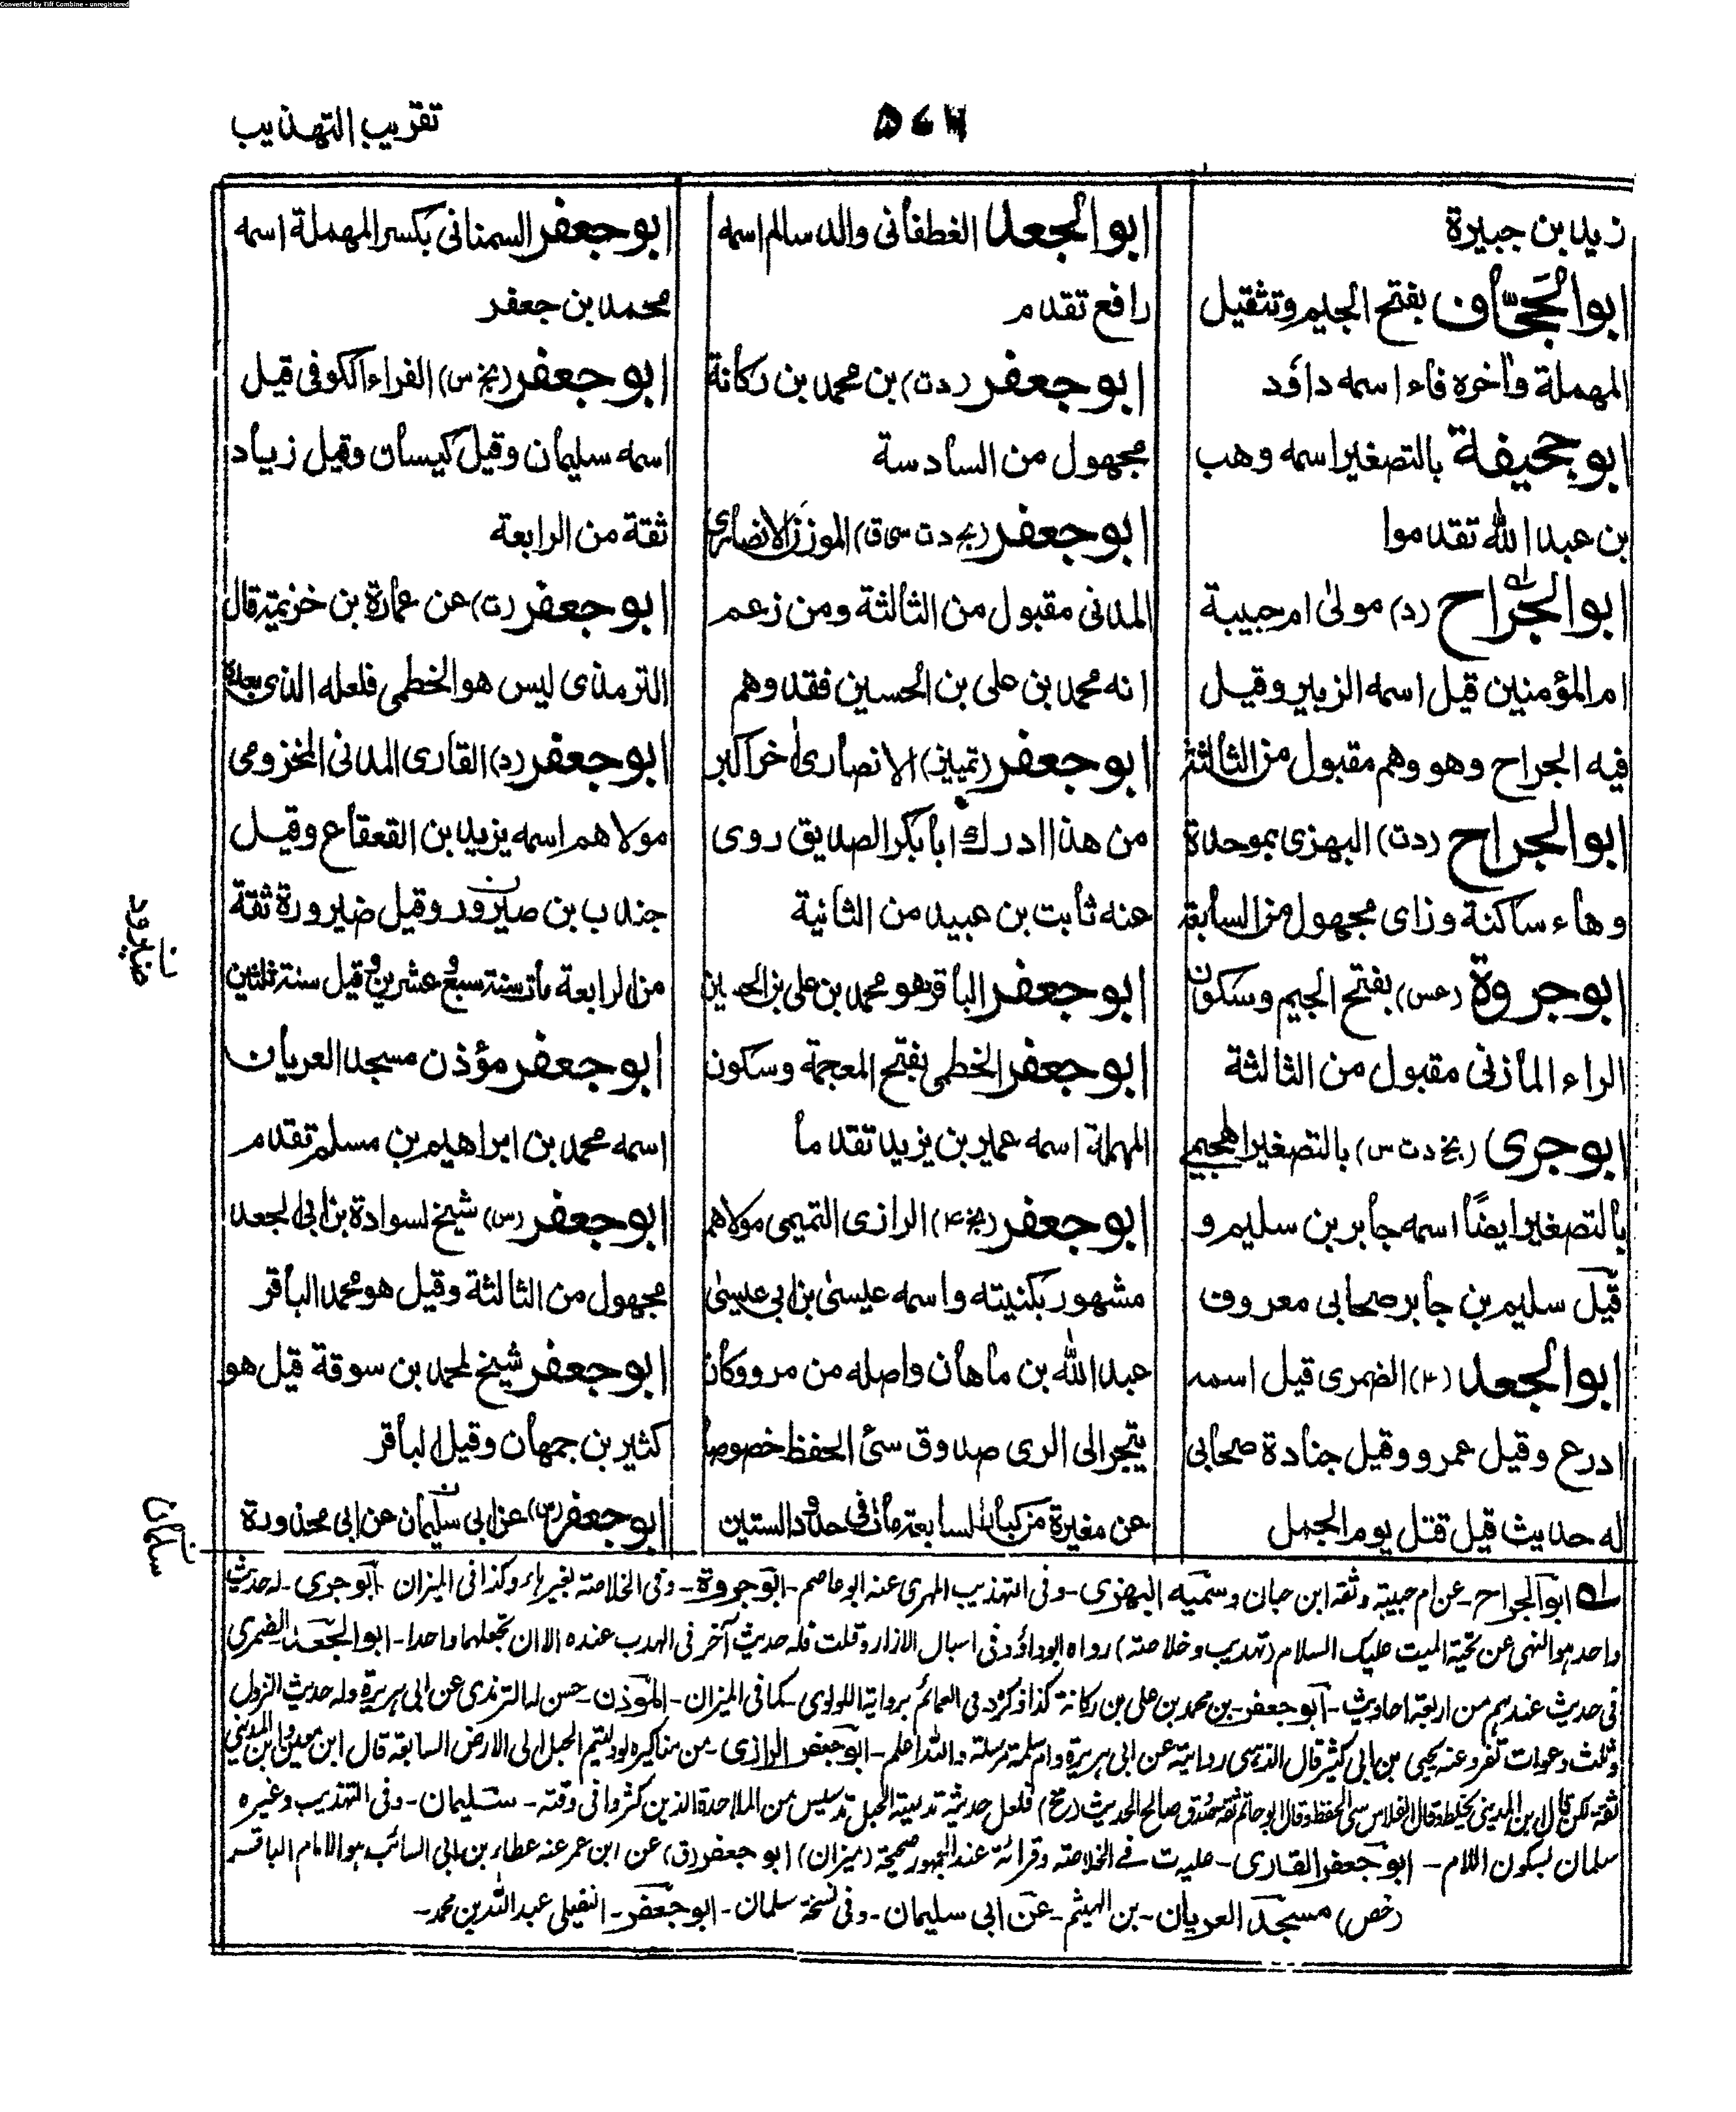 Converted by Tiff Combine - unregistered
تقریب التهذیب
زيد بن جبيرة
ابو الجَحَّاف بفتح الجيم وتثقيل
المهملة وآخره فاء اسمه داؤد
ابو جحيفة بالتصغير اسمه وهب
بن عبد الله تقدموا
ابو الجرّاح (د) مولىٰ ام حبيبة
ام المؤمنين قيل اسمه الزبير وقيل
فيه الجراح وهو وهم مقبول من الثالثة
ابو الجراح (دت) البهزى بموحدة
وهاء ساكنة وزاى مجهول من السابعة
ابو جروة (عس) بفتح الجيم وسكون
الراء المازنى مقبول من الثالثة
ابو جرى (بخ دت س) بالتصغير الهجيمى
بالتصغير ايضًا اسمه جابر بن سليم و
قيل سليم بن جابر صحابى معروف
ابو الجعد (٤) الضمرى قيل اسمه
ادرع وقيل عمرو وقيل جنادة صحابى
له حديث قيل قتل يوم الجمل
ابو الجعد الغطفانى والد سالم اسمه
رافع تقدم
ابو جعفر (دت) بن محمد بن ركانة
مجهول من السادسة
ابو جعفر (بخ دت سى ق) الموذن الانصارى
المدنى مقبول من الثالثة ومن زعم
انه محمد بن على بن الحسين فقد وهم
ابو جعفر (تمييز) الانصارى اخر اكبر
من هذا ادرك ابا بكر الصديق روى
عنه ثابت بن عبيد من الثانية
ابو جعفر الباقر هو محمد بن على بن الحسين
ابو جعفر الخطمى بفتح المعجمة وسكون
المهملة اسمه عمير بن يزيد تقدما
ابو جعفر (بخ ۴) الرازى التميمى مولاهم
مشهور بكنيته واسمه عيسىٰ بن ابى عيسىٰ
عبد الله بن ماهان واصله من مرو وكان
يتجر الى الرى صدوق سئ الحفظ خصوصا
عن مغيرة من كبار السابعة مات فى حدود الستين
ابو جعفر السمنانى بكسر المهملة اسمه
محمد بن جعفر
ابو جعفر (بخ س) الفراء الكوفى قيل
اسمه سليمان وقيل كيسان وقيل زياد
ثقة من الرابعة
ابو جعفر (ت) عن عمارة بن خزيمة قال
الترمذى ليس هو الخطمى فلعله الذى بعده
ابو جعفر (د) القارى المدنى المخزومى
مولاهم اسمه يزيد بن القعقاع وقيل
جندب بن صيرور وقيل ضيرورة ثقة
من الرابعة مات سنة سبع وعشرين وقيل سنة ثلثين
ابو جعفر مؤذن مسجد العريان
اسمه محمد بن ابراهيم بن مسلم تقدم
ابو جعفر (س) شيخ لسوادة بن ابى الجعد
مجهول من الثالثة وقيل هو محمد الباقر
ابو جعفر شيخ لمحمد بن سوقة قيل هو
كثير بن جمهان وقيل الباقر
ابو جعفر (س) عن ابى سليمان عن ابى محذورة
سلمان
ابو الجراح- عن ام حبيبة وثقه ابن حبان وسميه البهزى- وفى التهذيب المهرى عنه ابو عاصم- ابو جروة- وفى الخلاصة بغير راء وكذا فى الميزان- ابو جرى- له حديث
واحد هو النهى عن تحية الميت عليك السلام (تهذيب وخلاصة) رواه ابو داؤد فى اسبال الازار وقلت فله حديث آخر فى الهدب عنده الا ان تجعلهما واحدا- ابو الجعد الضمرى
فى حديث عندهم من اربعة احاديث- ابو جعفر- بن محمد بن على بن ركانة كذا ذكره د فى العمائم برواية اللولوى- كما فى الميزان- الموذن- حسن له الترمذى عن ابى هريرة وله حديث النزول
وثلث دعوات تفرد عنه يحيى بن ابى كثير قال الذهبى روايته عن ابى هريرة وام سلمة مرسلة والله اعلم- ابو جعفر الرازى- من مناكيره لو دليتم الحبل الى الارض السابعة قال ابن معين وابن المدينى
ثقة لكن قال ابن المدينى يخلط وقال الفلاس سئ الحفظ وقال ابو حاتم ثقة صدوق صالح الحديث فلعل حديثه تدلية الحبل تدسيس من الملاحدة الذين كثروا فى وقته- سليمان- وفى التهذيب وغيره
سلمان بسكون اللام- ابو جعفر القارى- فى الخلاصة وقرائة عند الجمهور صحيحة (ميزان) ابو جعفر (ق) عن ابن عمر عنه عطاء بن ابى السائب هو الامام الباقر
مسجد العريان- بن الهيثم- عن ابى سليمان- وفى نسخة سلمان- ابو جعفر- النفيلى عبد الله بن محمد-